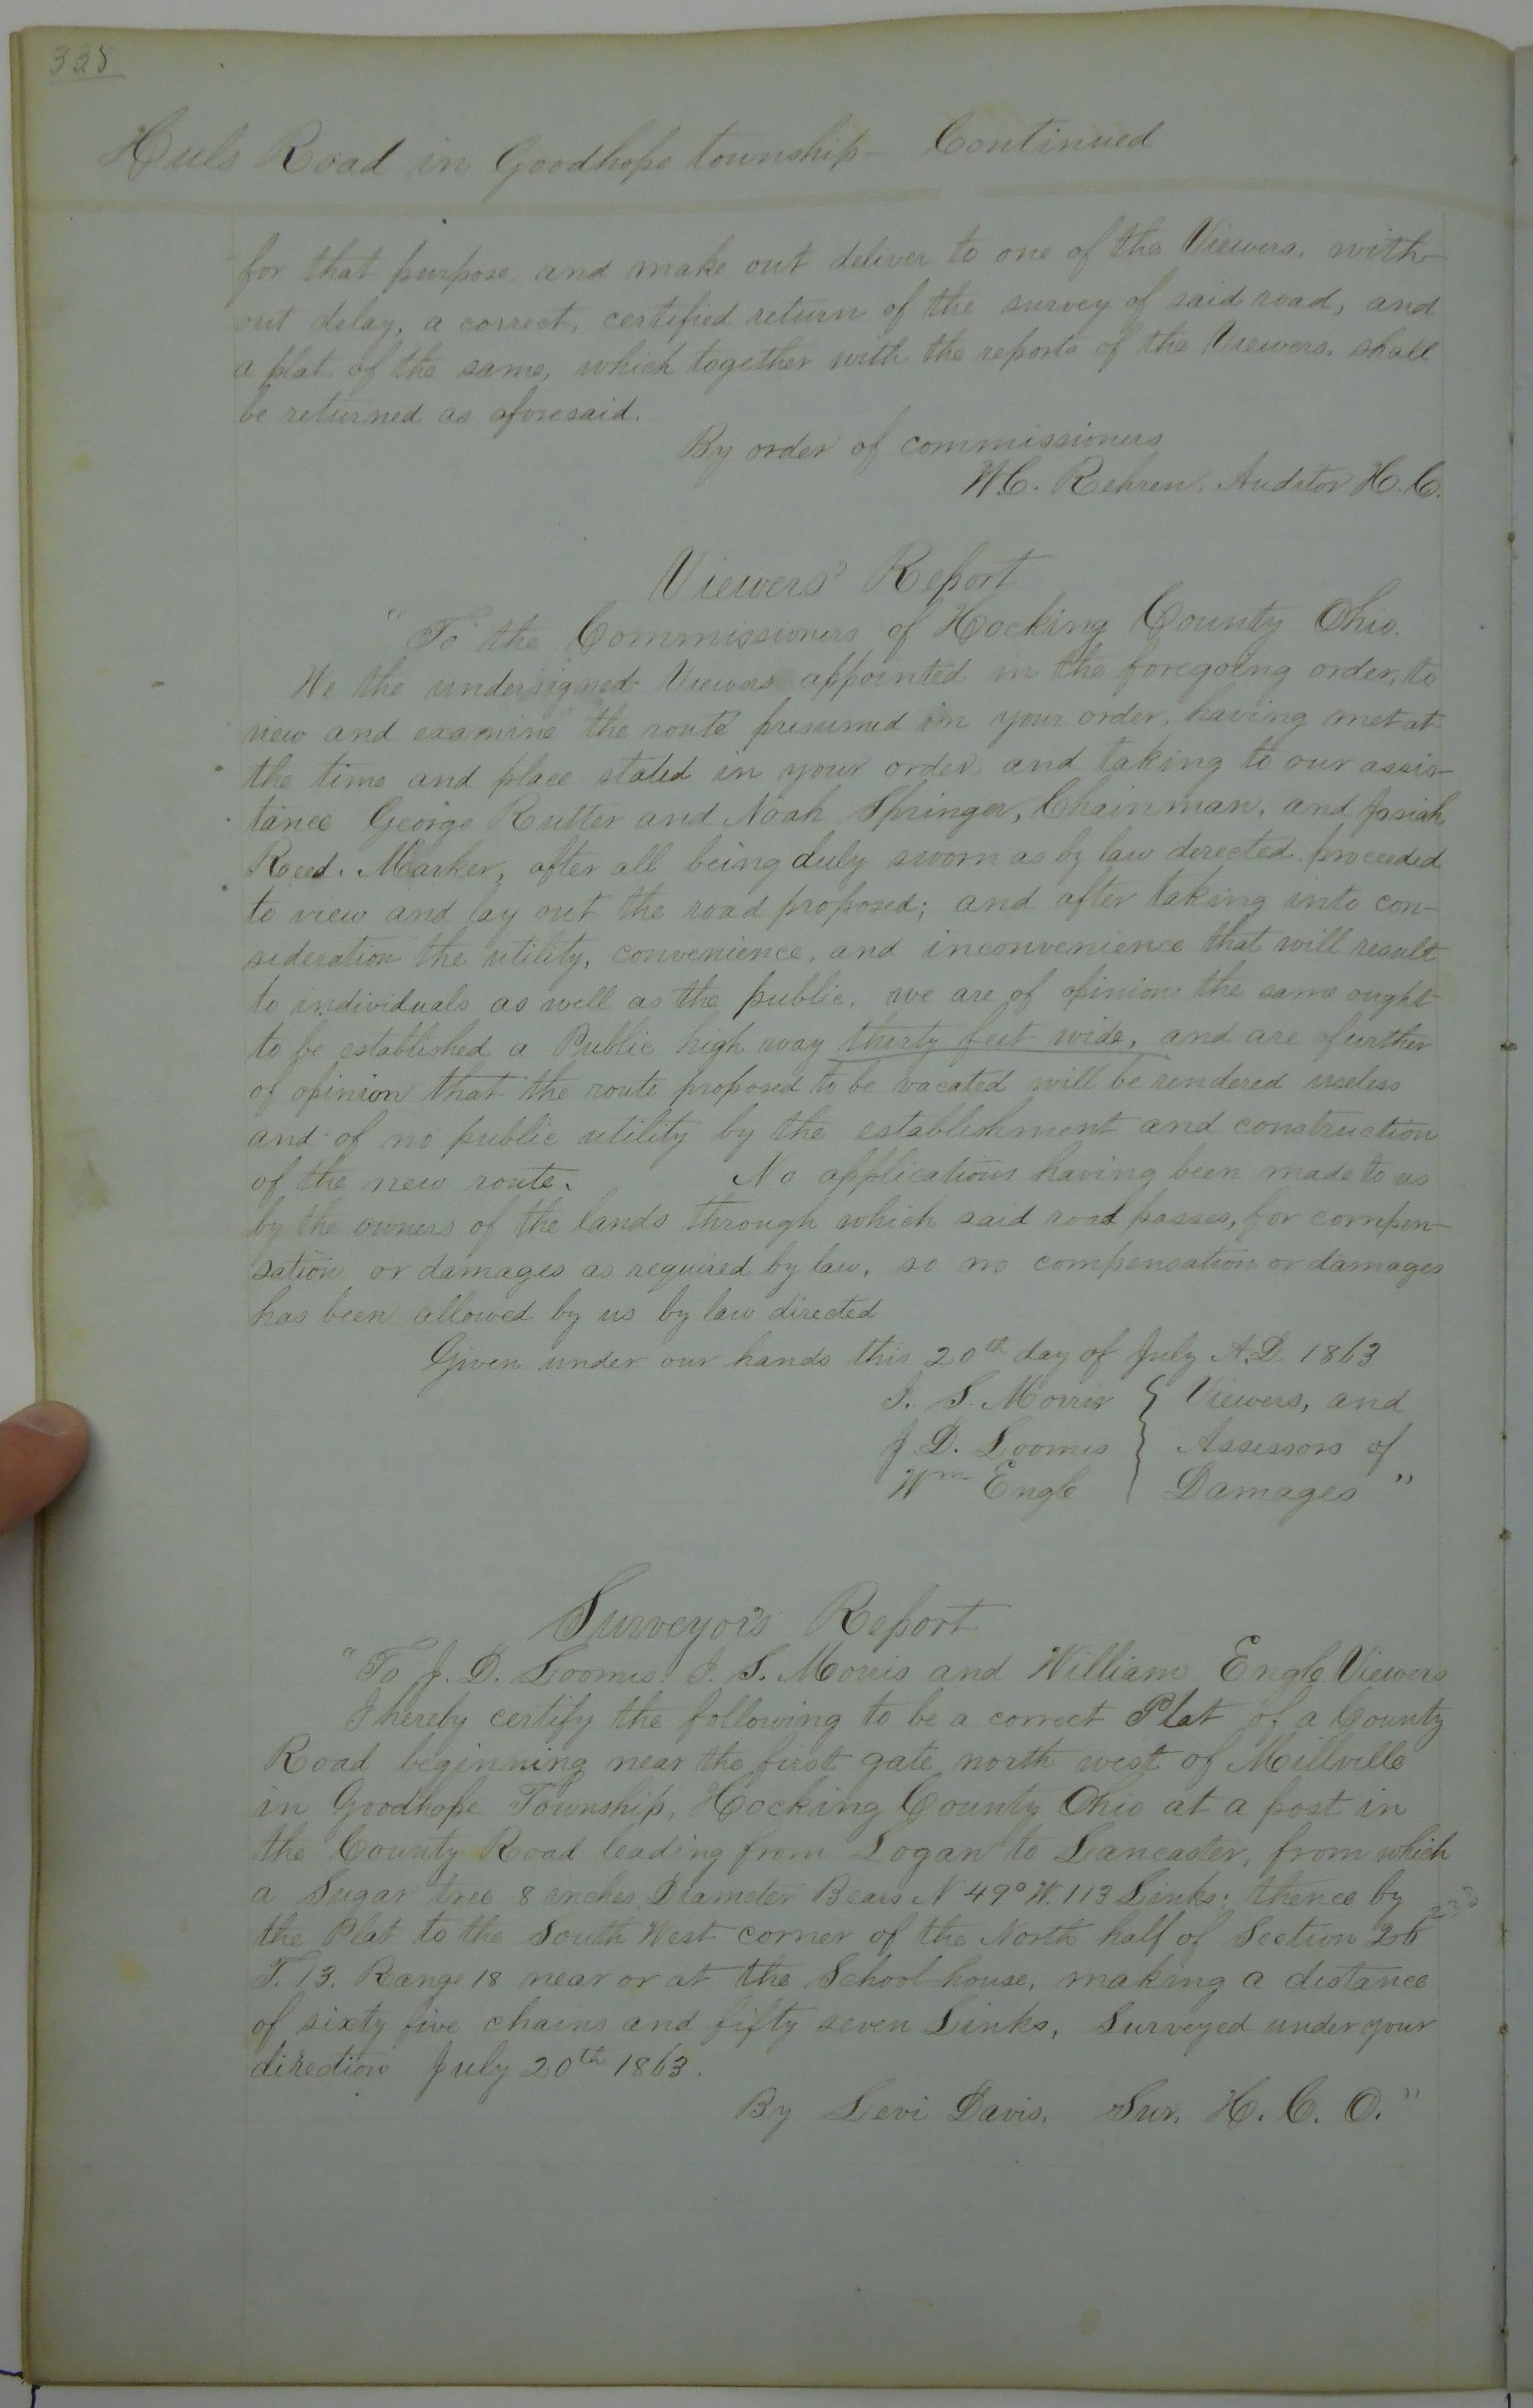 328
Huls Road in Goodhope township - Continued
for that purpose, and make out deliver to one of the Viewers, with-
out delay, a correct, certified return of the survey of said road, and
a plat of the same, which together with the reports of the Viewers, shall
be returned as aforesaid.
By order of commissioners
W.C. Rehren, Auditor H.C.
Viewers' Report
"To the Commissioners of Hocking County Ohio.
We the undersigned Viewers appointed in the foregoing order, to
view and examine the route presumed in your order, having met at
the time and place stated in your order, and taking to our assis-
tance George Rutter and Noah Springer, Chainman, and Josiah
Reed. Marker, after all being duly sworn as by law directed, proceeded
to view and lay out the road proposed; and after taking into con-
sideration the utility, convenience, and inconvenience that will result
to individuals as well as the public, we are of opinion the same ought
to be established a Public high way thirty feet wide, and are further
of opinion that the route proposed to be vacated will be rendered useless
and of no public utility by the establishment and construction
of the new route. No applications having been made to us
by the owners of the lands through which said road passes, for compen-
sation or damages as required by law, so no compensation or damages
has been allowed by us by law directed
Given under our hands this 20th day of July A.D. 1863
I. S. Morris } Viewers, and
J. D. Loomis } Assessors of
Wm Engle } Damages"
Surveyor's Report
"To J. D. Loomis, I. S. Morris and William Engle Viewers
I hereby certify the following to be a correct Plat of a County
Road beginning near the first gate north west of Millville
in Goodhope Township, Hocking County Ohio at a post in
the County Road leading from Logan to Lancaster, from which
a Sugar tree 8 inches Diameter Bears N 49° W. 113 Links; thence by
the Plat to the South West corner of the North half of Section 26
T. 13. Range 18 near or at the School house, making a distance
of sixty five chains and fifty seven Links, Surveyed under your
direction July 20th 1863.
By Levi Davis, Sur. H. C. O."